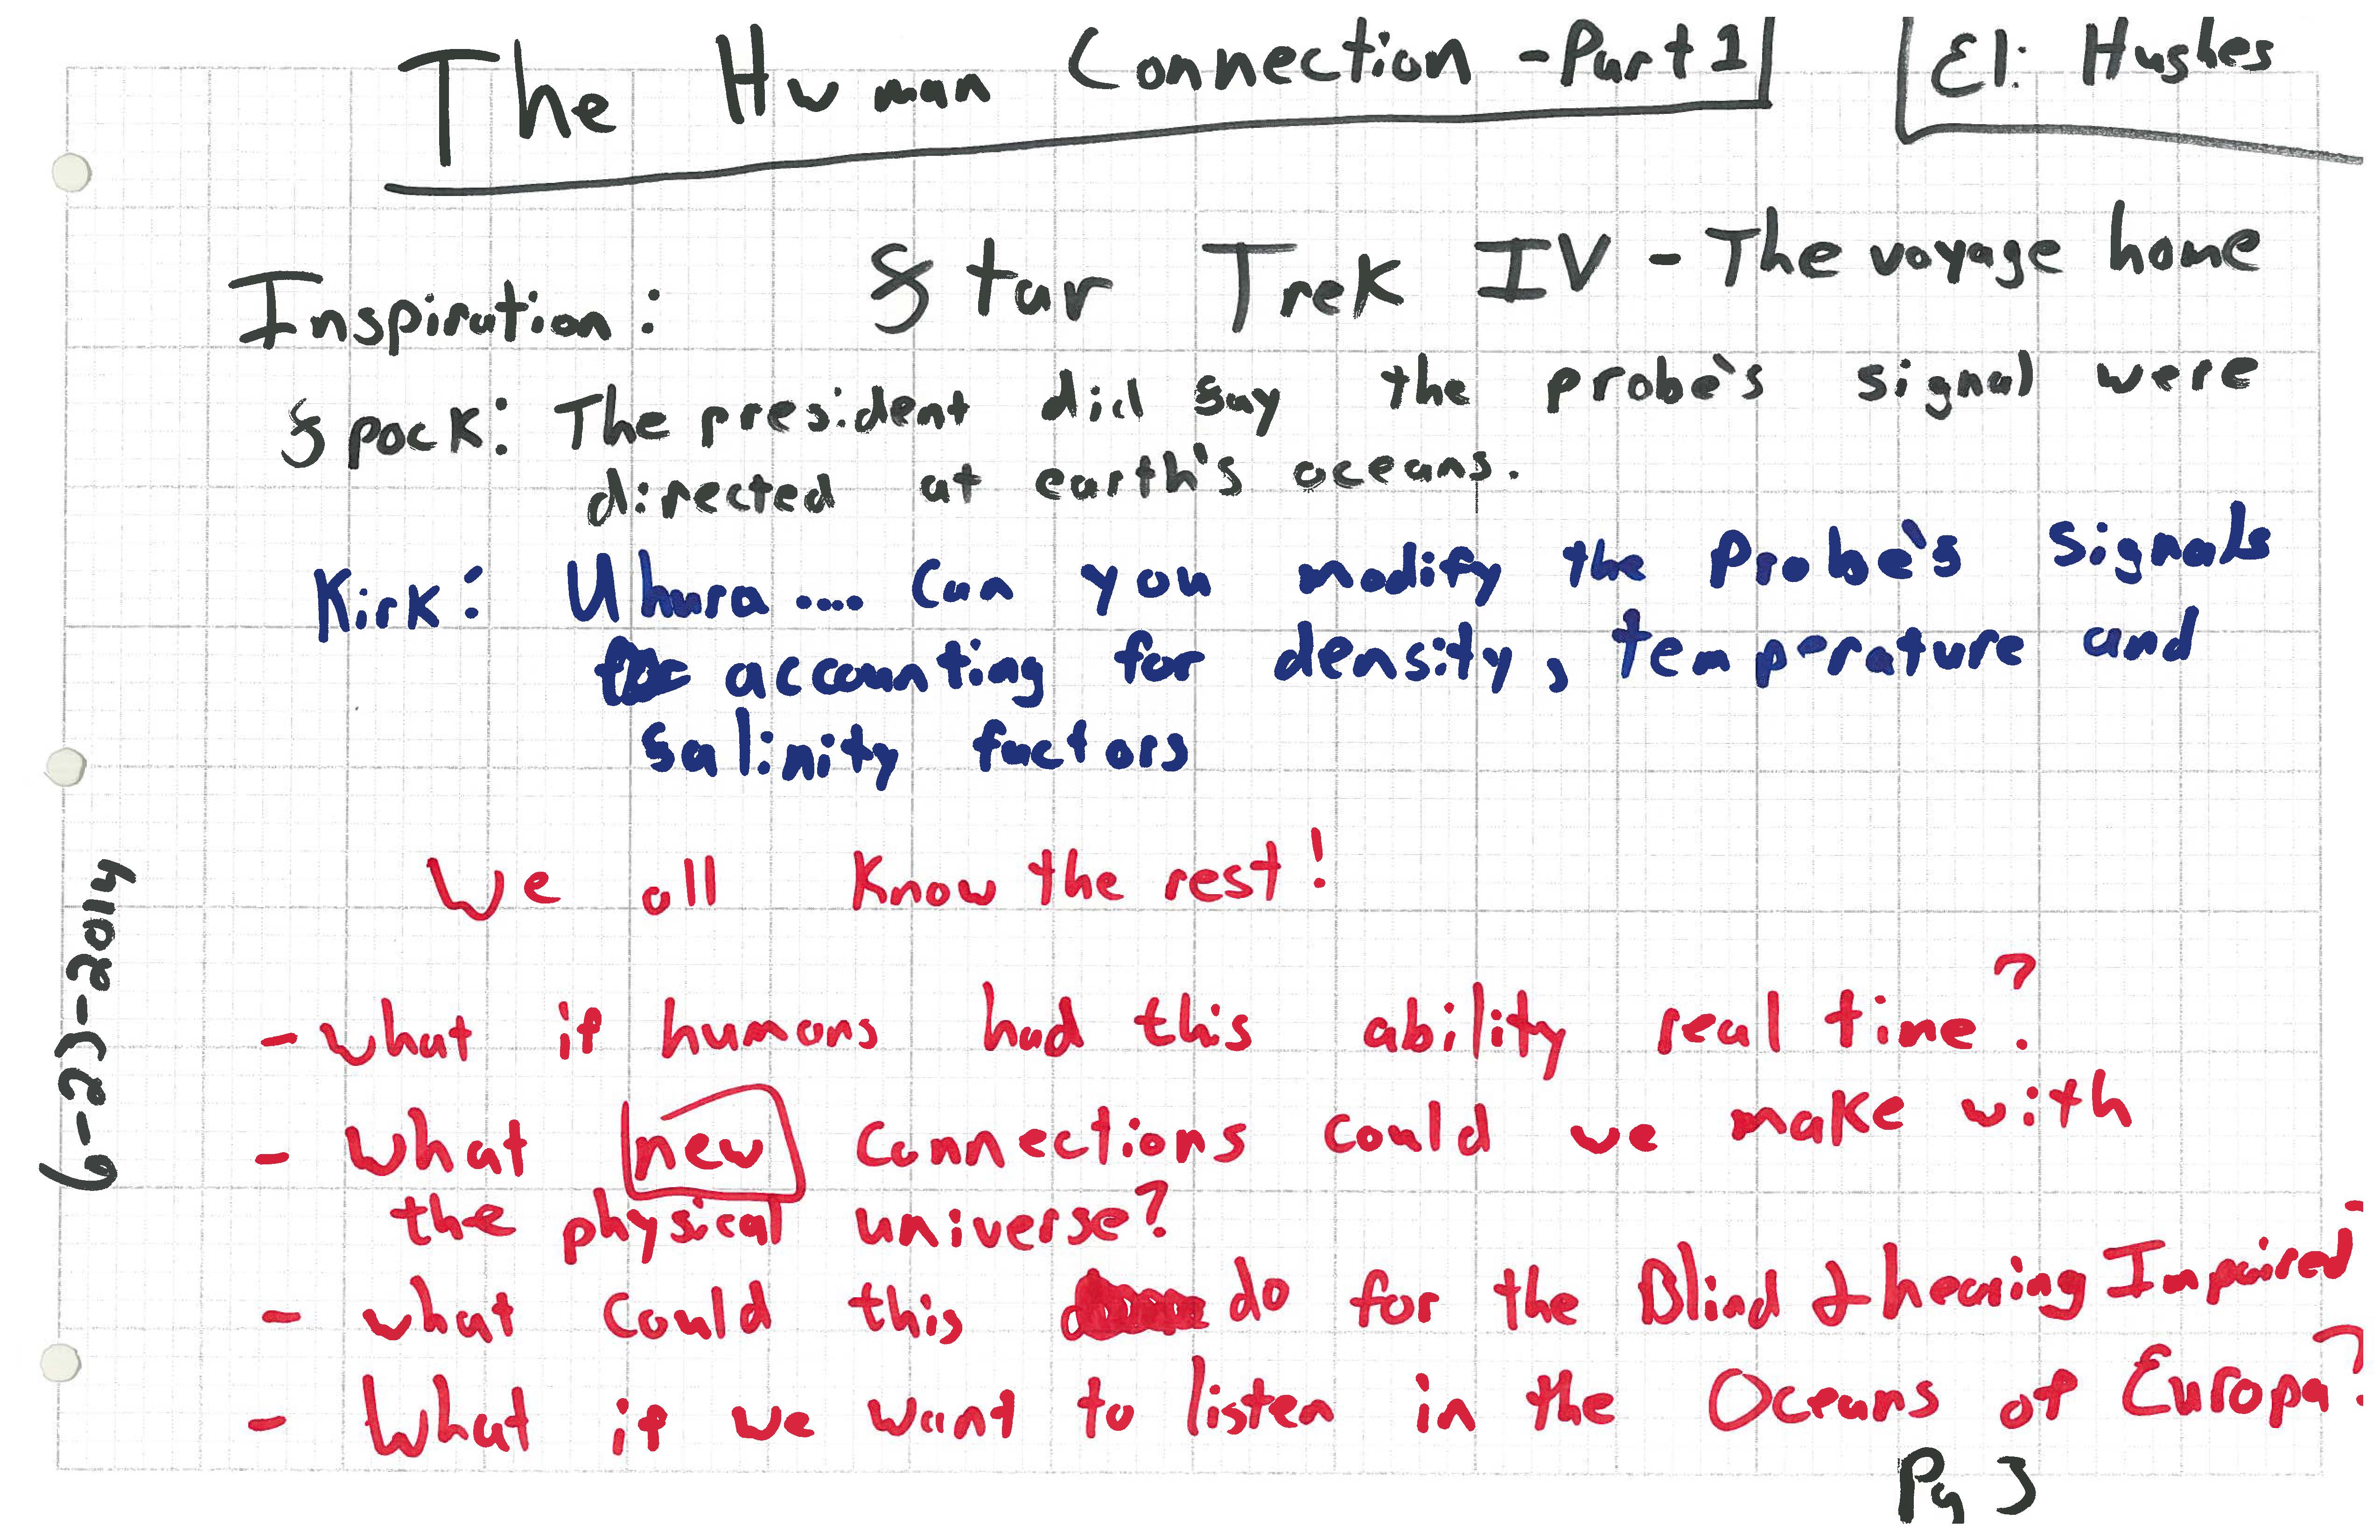 The Human Connection - Part 1
Eli Hughes
Inspiration: Star Trek IV - The voyage home
Spock: The president did say the probe's signal were
directed at earth's oceans.
Kirk: Uhura .... Can you modify the Probe's signals
accounting for density, temperature and
salinity factors
We all Know the rest!
- what if humans had this ability real time?
- What new connections could we make with
the physical universe?
- what could this do for the Blind & hearing Impaired
- What if we want to listen in the Oceans of Europa?
Pg 3
6-23-2014